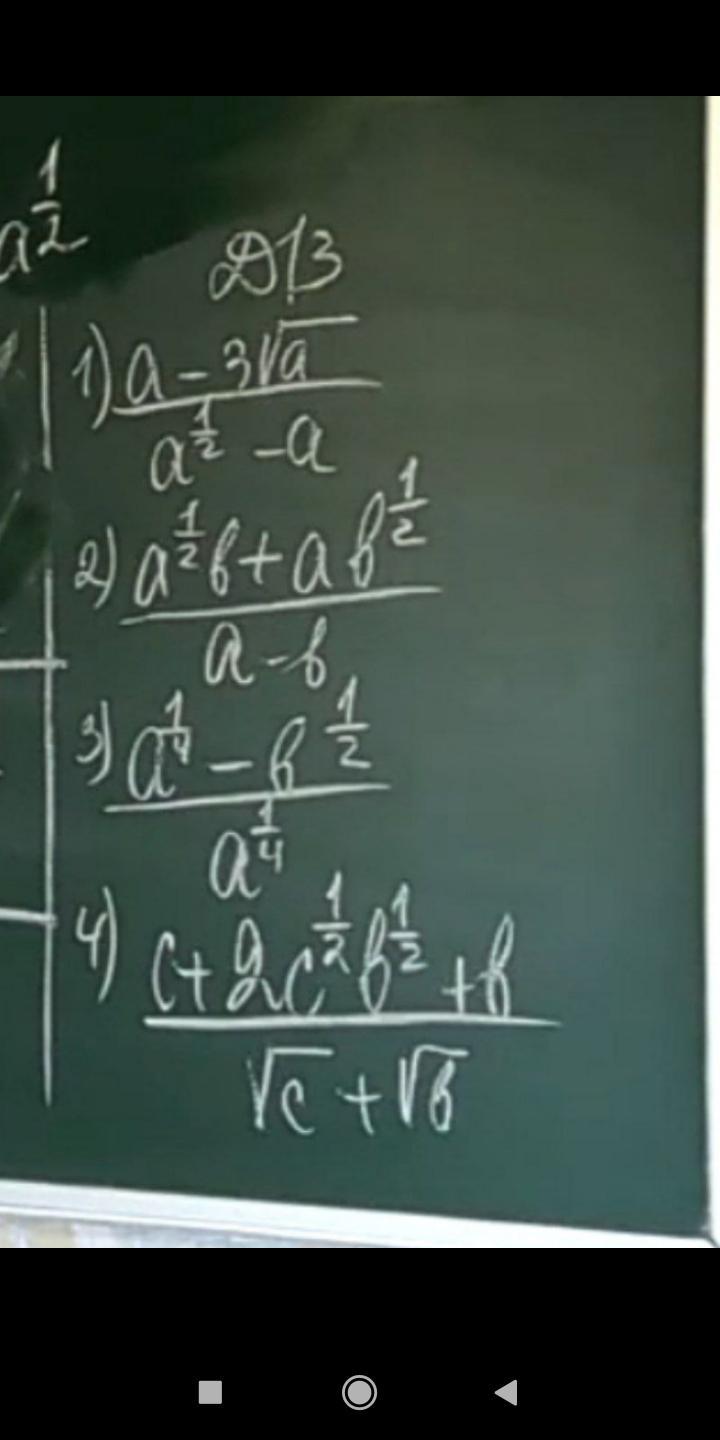 a^{1/2}
Д/З
1) (a - 3√a)/(a^{1/2} - a)
2) (a^{1/2}b + ab^{1/2})/(a - b)
3) (a^{1/4} - b^{1/2})/(a^{1/4})
4) (c + 2c^{1/2}b^{1/2} + b)/(√c + √b)